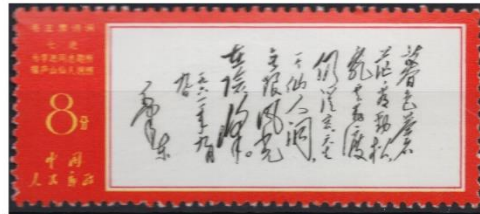 毛主席诗词
七绝
为李进同志题所
摄庐山仙人洞照
8分
中国
人民邮政
暮色苍
茫看劲松,
乱云飞渡
仍从容。天生
一个仙人洞,
无限风光
在险峰。
一九六一年九月
九日
毛泽东